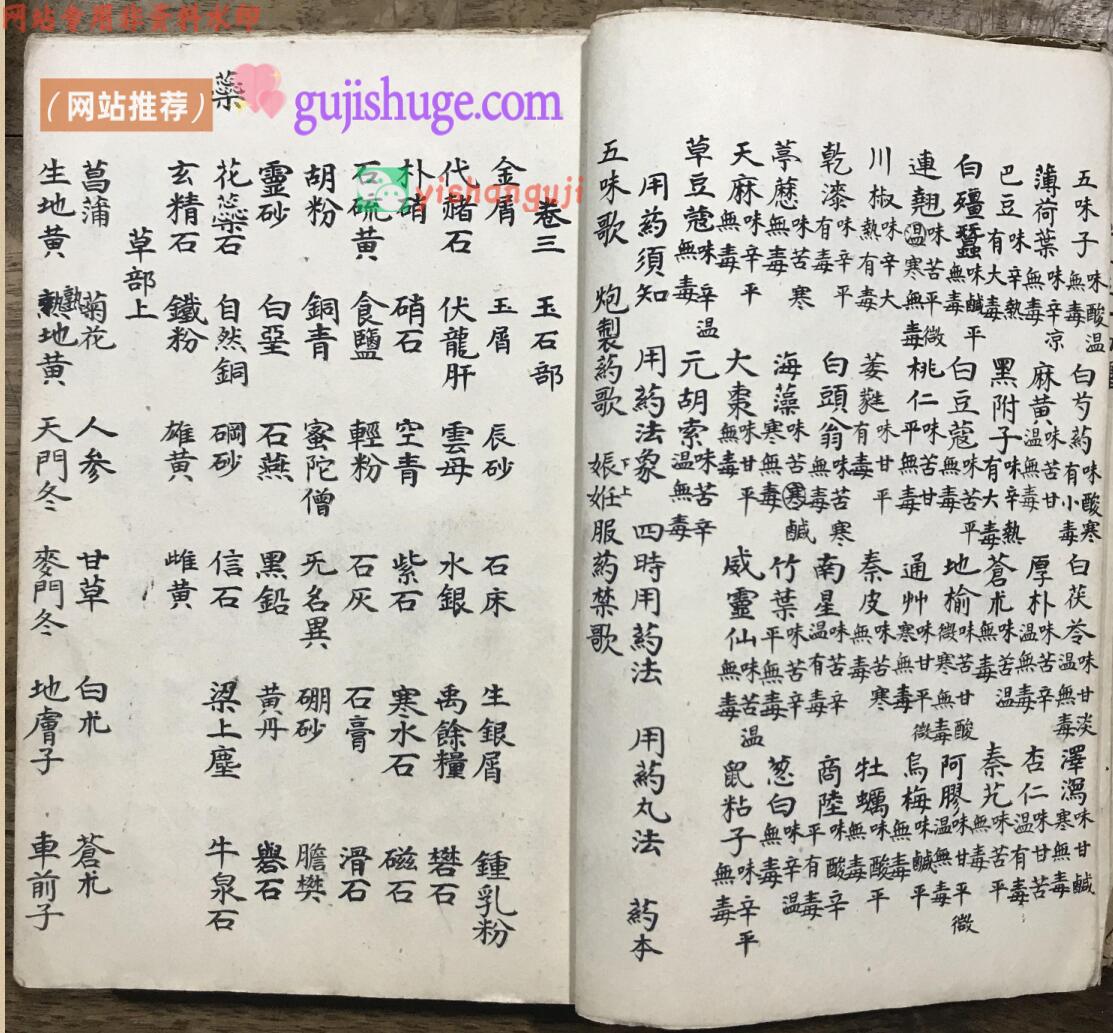 网站专用非资料水印
（网站推荐） gujishuge.com
yishanguji
五味子味酸温無毒 白芍药味酸寒有小毒 白茯苓味甘淡温無毒 澤瀉味甘鹹寒無毒
薄荷葉味辛凉無毒 麻黄味苦甘温無毒 厚朴味苦辛温無毒 杏仁味甘苦温有毒
巴豆味辛熱有大毒 黑附子味辛熱有大毒 蒼朮味苦温無毒 秦艽味苦平無毒
白殭蠶味鹹平無毒 白豆蔻味苦平無毒 地榆味苦甘酸微寒無毒 阿膠味甘平微温無毒
連翹味苦平微温寒無毒 桃仁味苦甘平無毒 通艸味甘平微寒無毒 烏梅味鹹平無毒
川椒味辛大熱有毒 萎蕤味甘平有毒 秦皮味苦寒無毒 牡蠣味酸平無毒
乾漆味辛平有毒 白頭翁味苦寒無毒 南星味苦辛温有毒 商陸味酸辛平有毒
葶藶味苦寒無毒 海藻味苦寒鹹寒無毒 竹葉味苦辛平無毒 葱白味辛温無毒
天麻味辛平無毒 大棗味甘平無毒 威靈仙味苦温無毒 鼠粘子味辛平無毒
草豆蔻味辛温無毒 元胡索味苦辛温無毒
用药須知 用药法象 四時用药法 用药丸法 药本
五味歌 炮製药歌 娠妊下上服药禁歌
藥
卷三 玉石部
金屑 玉屑 辰砂 石床 生銀屑 鍾乳粉
代赭石 伏龍肝 雲母 水銀 禹餘糧 礬石
朴硝 硝石 空青 紫石 寒水石 磁石
石硫黄 食鹽 輕粉 石灰 石膏 滑石
胡粉 銅青 蜜陀僧 旡名異 硼砂 膽樊
靈砂 白堊 石燕 黑鉛 黄丹 礜石
花蘂石 自然銅 碙砂 信石 梁上塵 牛泉石
玄精石 鐵粉 雄黄 雌黄
草部上
菖蒲 菊花 人参 甘草 白朮 蒼朮
生地黄 熟地黄 天門冬 麥門冬 地膚子 車前子